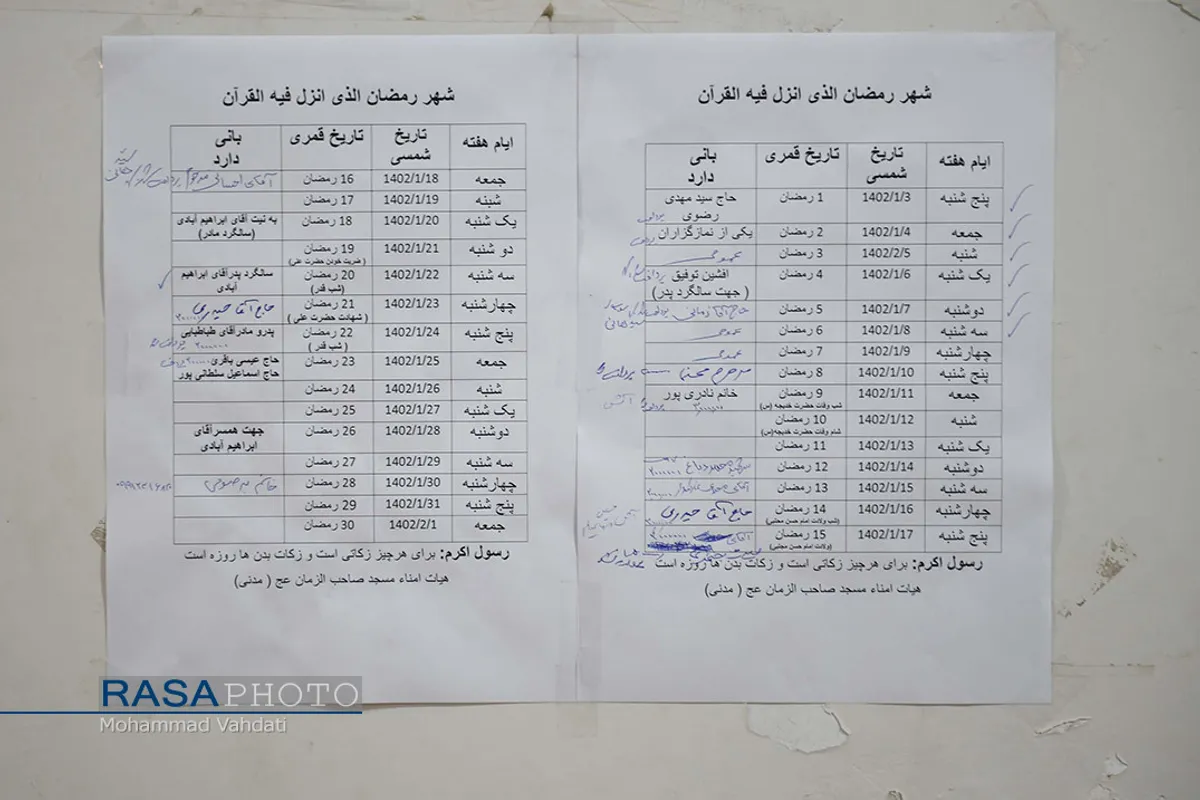 شهر رمضان الذی انزل فیه القرآن
ایام هفته تاریخ شمسی تاریخ قمری بانی دارد
پنج شنبه 1402/1/3 1 رمضان حاج سید مهدی رضوی
جمعه 1402/1/4 2 رمضان یکی از نمازگزاران
شنبه 1402/2/5 3 رمضان عمومی
یک شنبه 1402/1/6 4 رمضان افشین توفیق
( جهت سالگرد پدر)
دوشنبه 1402/1/7 5 رمضان
سه شنبه 1402/1/8 6 رمضان عمومی
چهارشنبه 1402/1/9 7 رمضان عمومی
پنج شنبه 1402/1/10 8 رمضان
جمعه 1402/1/11 9 رمضان خانم نادری پور
شب وفات حضرت خدیجه (س)
شنبه 1402/1/12 10 رمضان
شام وفات حضرت خدیجه(س)
یک شنبه 1402/1/13 11 رمضان
دوشنبه 1402/1/14 12 رمضان
سه شنبه 1402/1/15 13 رمضان
چهارشنبه 1402/1/16 14 رمضان حاج آقا حیدری
(شب ولادت امام حسن مجتبی)
پنج شنبه 1402/1/17 15 رمضان
(ولادت امام حسن مجتبی)
رسول اکرم: برای هرچیز زکاتی است و زکات بدن ها روزه است
هیات امناء مسجد صاحب الزمان عج ( مدنی)
شهر رمضان الذی انزل فیه القرآن
ایام هفته تاریخ شمسی تاریخ قمری بانی دارد
جمعه 1402/1/18 16 رمضان
شنبه 1402/1/19 17 رمضان
یک شنبه 1402/1/20 18 رمضان به نیت آقای ابراهیم آبادی
(سالگرد مادر)
دو شنبه 1402/1/21 19 رمضان
( ضربت خودن حضرت علی)
سه شنبه 1402/1/22 20 رمضان سالگرد پدرآقای ابراهیم آبادی
(شب قدر)
چهارشنبه 1402/1/23 21 رمضان حاج آقا حیدری
( شهادت حضرت علی )
پنج شنبه 1402/1/24 22 رمضان پدرو مادرآقای طباطبایی
( شب قدر )
جمعه 1402/1/25 23 رمضان حاج عیسی باقری
حاج اسماعیل سلطانی پور
شنبه 1402/1/26 24 رمضان
یک شنبه 1402/1/27 25 رمضان
دوشنبه 1402/1/28 26 رمضان جهت همسرآقای
ابراهیم آبادی
سه شنبه 1402/1/29 27 رمضان
چهارشنبه 1402/1/30 28 رمضان خانم
پنج شنبه 1402/1/31 29 رمضان
جمعه 1402/2/1 30 رمضان
رسول اکرم: برای هرچیز زکاتی است و زکات بدن ها روزه است
هیات امناء مسجد صاحب الزمان عج ( مدنی)
RASAPHOTO
Mohammad Vahdati